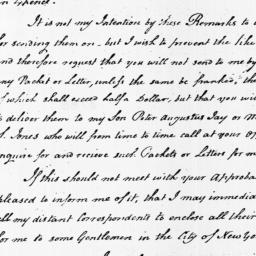 It is not my Intention by these Remarks to
for sending them on - but I wish to prevent the like
and therefore request that you will not send to me by
any Packet or Letter, unless the same be franked, the
of which shall exceed half a Dollar, but that you wi
deliver them to my Son Peter Augustus Jay or M
Jones who will from time to time call at your Of
enquire for and recieve such Packets or Letters for m
If this should not meet with your Approba
pleased to inform me of it, that I may immedia
all my distant Correspondents to enclose all their
for me to some Gentlemen in the City of New Yor